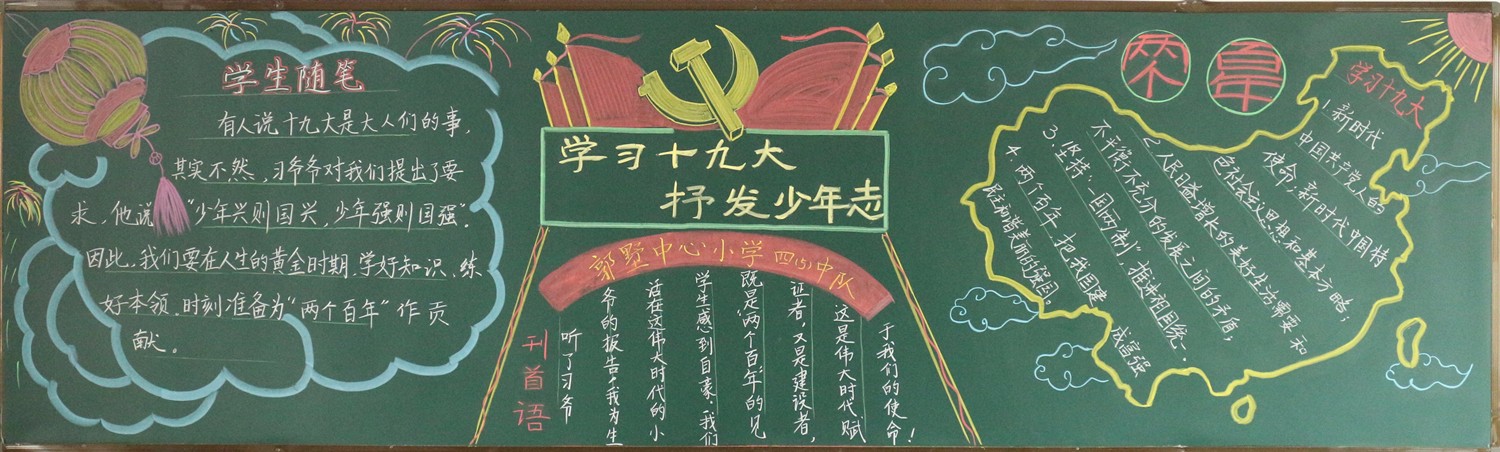 学生随笔
有人说十九大是大人们的事,
其实不然,习爷爷对我们提出了要
求,他说"少年兴则国兴,少年强则国强".
因此,我们要在人生的黄金时期,学好知识、练
好本领,时刻准备为"两个百年"作贡
献。
学习十九大
抒发少年志
郭墅中心小学四(5)中队
刊首语
听了习爷
爷的报告,我为生
活在这伟大时代的小
学生感到自豪.我们
既是"两个百年"的见
证者,又是建设者,
这是伟大时代赋
于我们的使命!
学习十九大
1.新时代
中国共产党的
使命;新时代中国特
色社会主义思想和基本方略;
2.人民日益增长的美好生活需要和
不平衡不充分的发展之间的矛盾;
3.坚持"一国两制"推进祖国统一.
4.两个百年 把我国建成富强
民主和谐美丽的强国.